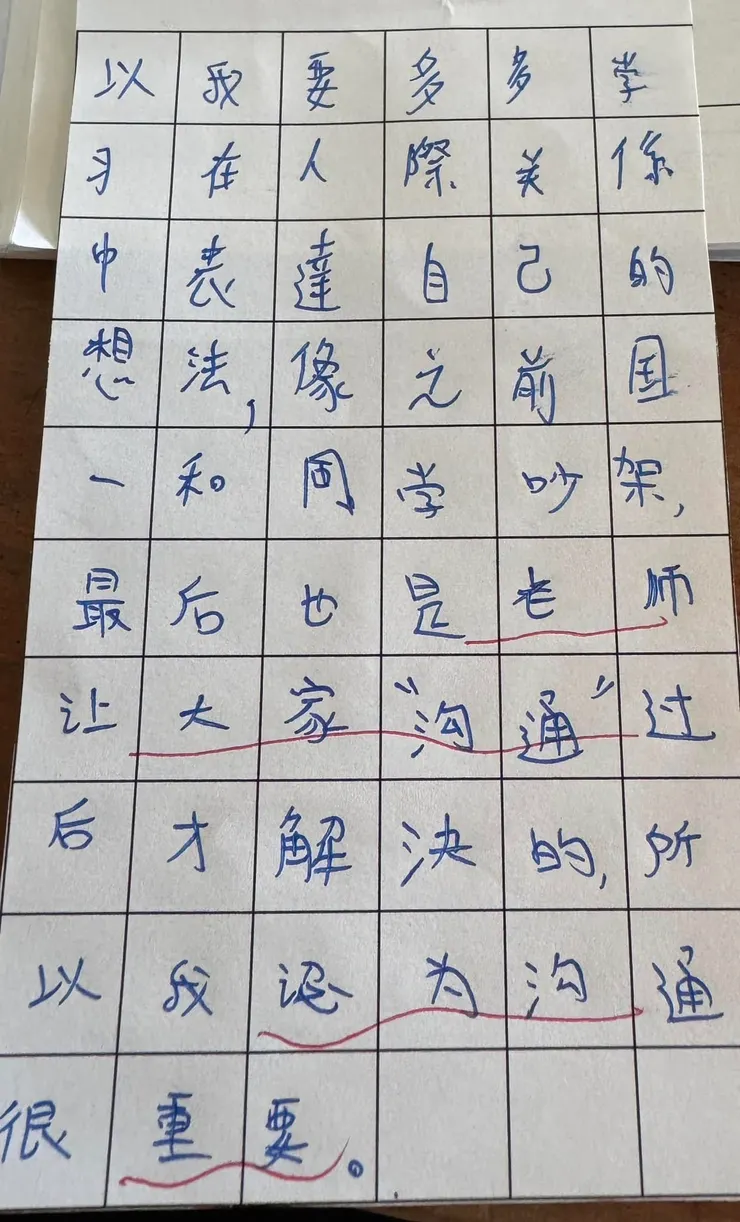 以我要多多学
习在人際关係
中表達自己的
想法,像之前国
一和同学吵架,
最后也是老师
让大家“沟通”过
后才解決的,所
以我认为沟通
很重要。